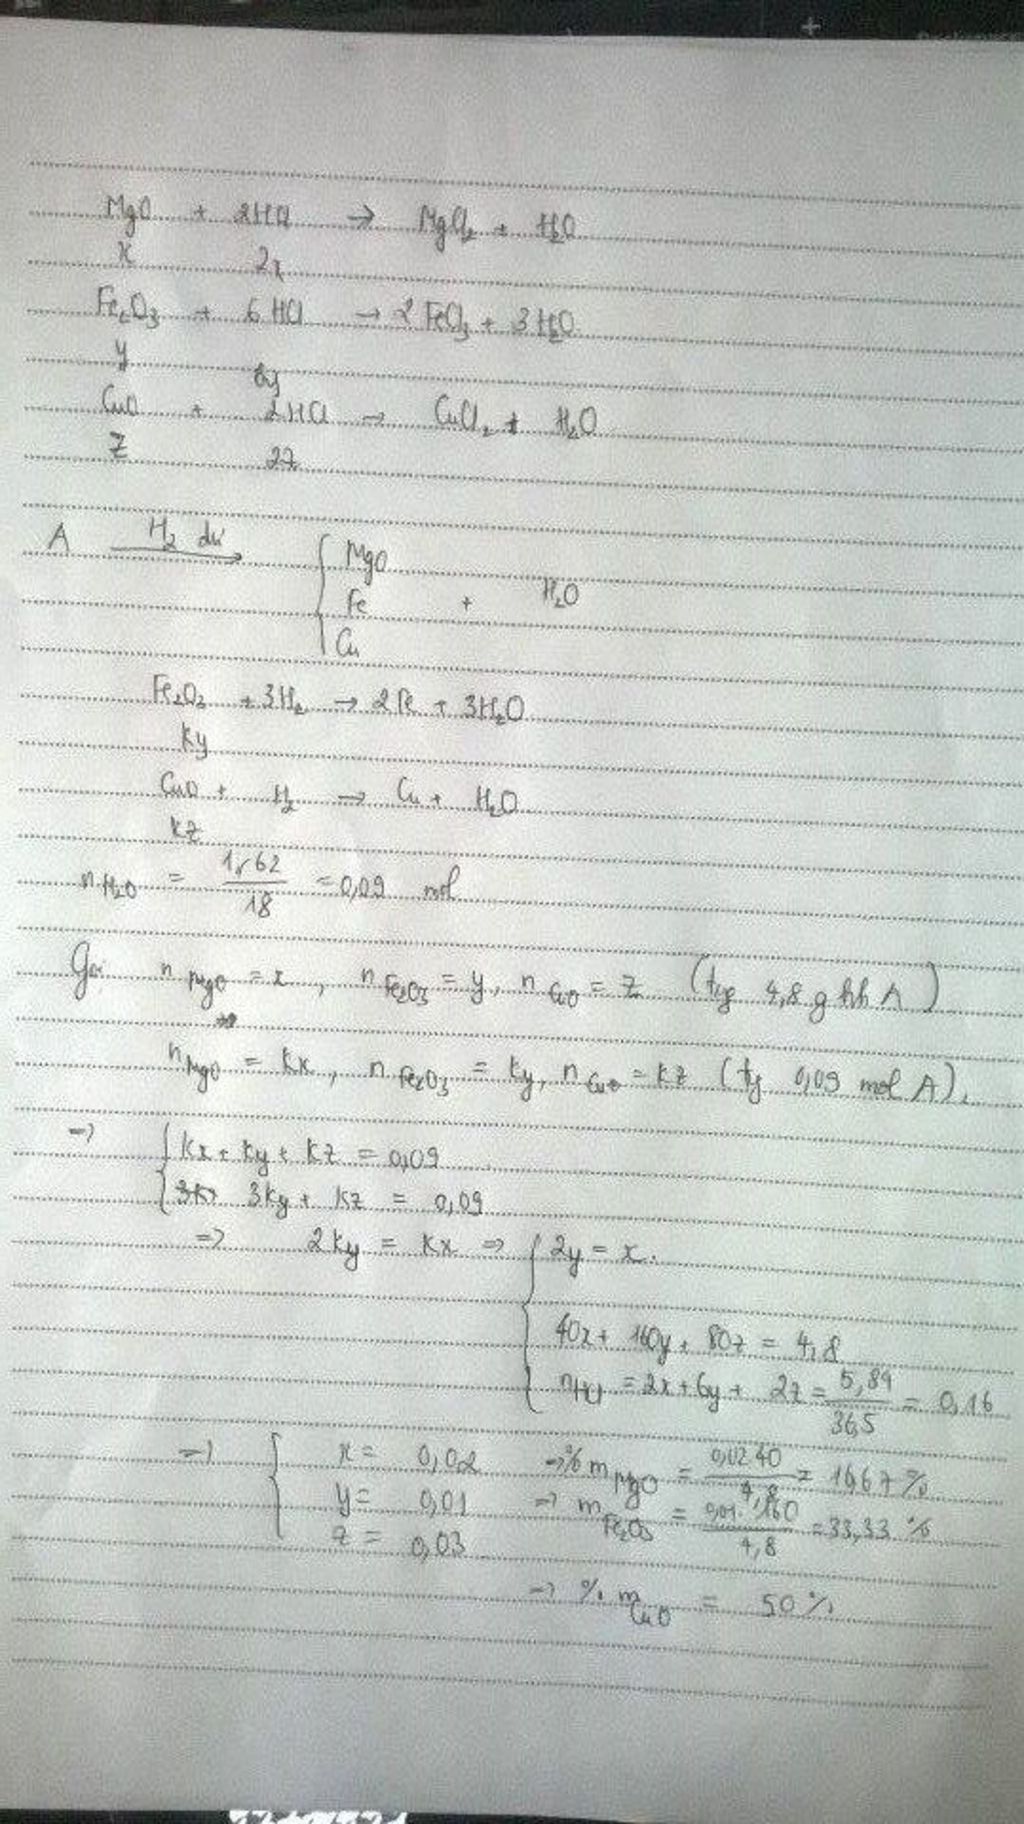 MgO + 2HCl → MgCl₂ + H₂O
x 2x
Fe₂O₃ + 6HCl → 2FeCl₃ + 3H₂O
y 6y
CuO + 2HCl → CuCl₂ + H₂O
z 2z
A H₂ dư → { MgO
Fe + H₂O
Cu
Fe₂O₃ + 3H₂ → 2Fe + 3H₂O
ky
CuO + H₂ → Cu + H₂O
kz
n H₂O = 1,62/18 = 0,09 mol
Gọi n MgO = x, n Fe₂O₃ = y, n CuO = z (trg 4,8 g hh A)
n MgO = kx, n Fe₂O₃ = ky, n CuO = kz (trg 0,09 mol A).
=> { kx + ky + kz = 0,09
3ky + kz = 0,09
=> 2ky = kx => { 2y = x.
40x + 160y + 80z = 4,8
n HCl = 2x + 6y + 2z = 5,84/36,5 = 0,16
=> { x = 0,02 => % m MgO = 0,02.40/4,8 = 16,67 %
y = 0,01 => m Fe₂O₃ = 0,01.160/4,8 = 33,33 %
z = 0,03
=> % m CuO = 50 %